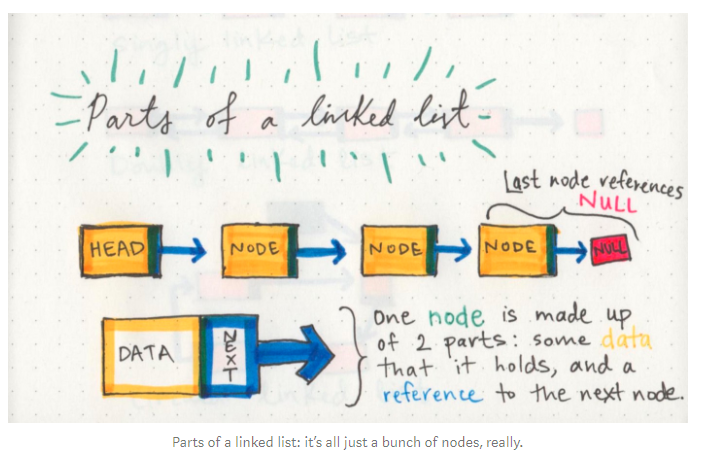 Parts of a linked list
Last node references
NULL
HEAD NODE NODE NODE NULL
DATA NEXT
one node is made up
of 2 parts: some data
that it holds, and a
reference to the next node.
Parts of a linked list: it's all just a bunch of nodes, really.